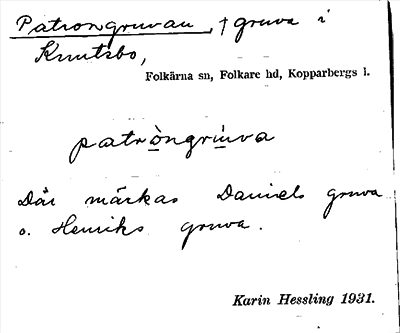 Patrongruvan, † gruva i
Knutsbo,
Folkärna sn, Folkare hd, Kopparbergs l.
patròngrúva
Där märkas Daniels gruva
o. Henriks gruva.
Karin Hessling 1931.